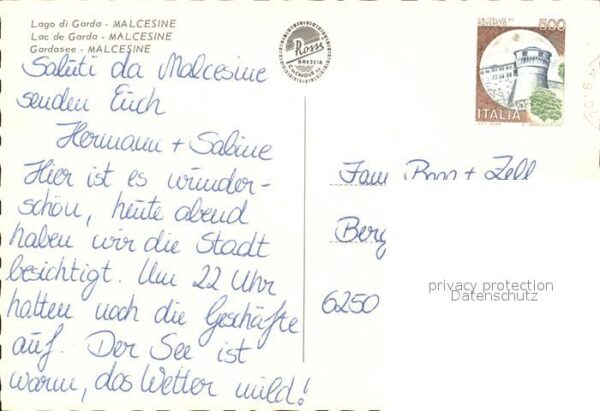 Lago di Garda - MALCESINE
Lac de Garda - MALCESINE
Gardasee - MALCESINE
Ross
BRESCIA
500
ITALIA
Saluti da Malcesine
senden Euch
Hermann + Sabine
Hier ist es wunder-
schön, heute abend
haben wir die Stadt
besichtigt. Um 22 Uhr
hatten noch die Geschäfte
auf. Der See ist
warm, das Wetter mild!
Fam. Ross + Zell
Berg
6250
privacy protection
Datenschutz